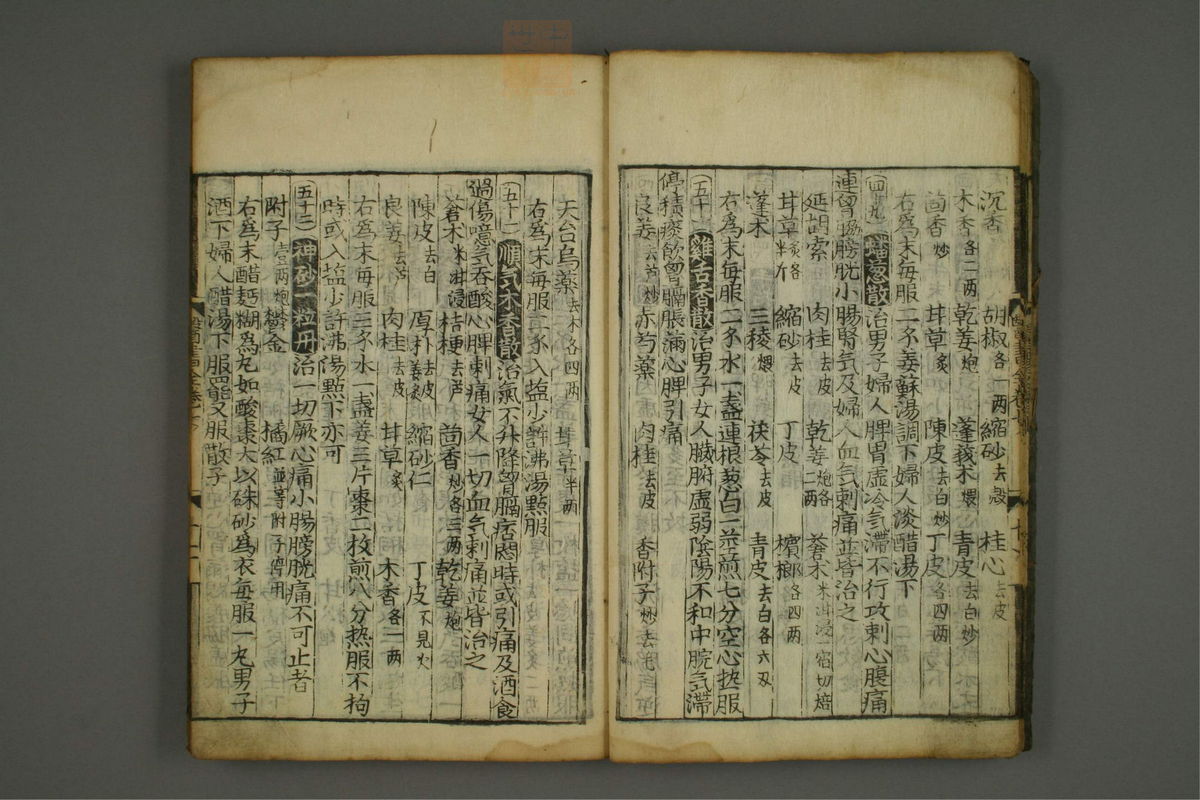 沉香 胡椒各一两 縮砂去殼 桂心去皮
木香各二两 乾姜炮 蓬莪术煨 青皮去白炒
茴香炒 甘草炙 陳皮去白炒 丁皮各四两
右為末每服二錢姜蘇湯調下婦人淡醋湯下
四九 蟠葱散 治男子婦人脾胃虛冷气滯不行攻刺心腹痛
連胷脇膀胱小腸腎气及婦人血气刺痛並皆治之
延胡索 肉桂去皮 乾姜炮各二两 蒼木米泔浸一宿切焙
甘草炙各半斤 縮砂去皮 丁皮 檳榔各四两
蓬术 三稜煨 茯苓去皮 青皮去白各六两
右為末每服二錢水一盞連根葱白一莖煎七分空心热服
五十 雞舌香散 治男子女人臟腑虛弱陰陽不和中脘气滯
停積痰飲胷膈脹滿心脾引痛
良姜去芦炒 赤芍藥 肉桂去皮 香附子炒去毛
天台烏藥去木各四两 甘草半两
右為末每服一錢入盐少許沸湯點服
五十一 順气木香散 治氣不升降胷膈痞悶時或引痛及酒食
過傷噫气吞酸心脾刺痛女人一切血气刺痛並皆治之
蒼木米泔浸 桔梗去芦 茴香炒各三两 乾姜炮
陳皮去白 厚朴去皮姜炙 縮砂仁 丁皮不見火
良姜去芦 肉桂去皮 甘草炙 木香各一两
右為末每服三錢水一盞姜三片棗二枚煎八分热服不拘
時或入盐少許沸湯點下亦可
五十二 神砂一粒丹 治一切厥心痛小腸膀胱痛不可止者
附子壹两炮 欎金 橘紅並等附子停用
右為末醋麪糊為丸如酸棗大以硃砂為衣每服一丸男子
酒下婦人醋湯下服罷又服散子